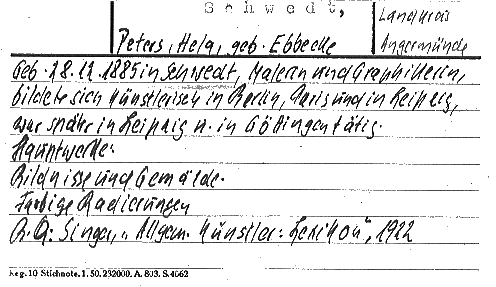 Schwedt,
Landkreis
Angermünde
Peters, Hela, geb. Ebbecke
Geb. 28.12.1885 in Schwedt, Malerin und Graphikerin,
bildete sich künstlerisch in Berlin, Paris und in Leipzig,
war später in Leipzig u. in Göttingen tätig.
Hauptwerke:
Bildnisse und Gemälde.
Farbige Radierungen
Singer, „Allgem. Künstler-Lexikon", 1922
Reg. 10 Stichnote. 1. 50. 232000. A. 803. S. 4062